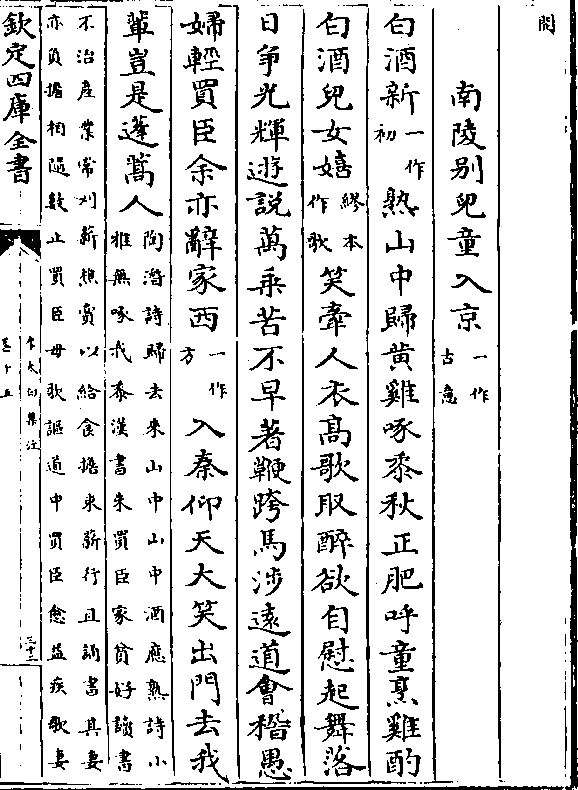 南陵别兒童入京 一作古意
白酒新一作初熟山中歸黄雞啄黍秋正肥呼童烹雞酌
白酒兒女嬉繆本作歌笑牽人衣髙歌取醉欲自慰起舞落
日爭光輝遊說萬乘苦不早著鞭跨馬涉遠道會稽愚
婦輕買臣余亦辭家西一作方入秦仰天大笑出門去我
輩豈是蓬蒿人 陶潛詩歸去來山中山中酒應熟詩小
雅無啄我黍漢書朱買臣家貧好讀書
不治産業常刈薪樵賣以給食擔束薪行且誦書其妻
亦負擔相隨數止買臣毋歌謳道中買臣愈益疾歌妻
欽定四庫全書
李太白集注
卷十五
三十三